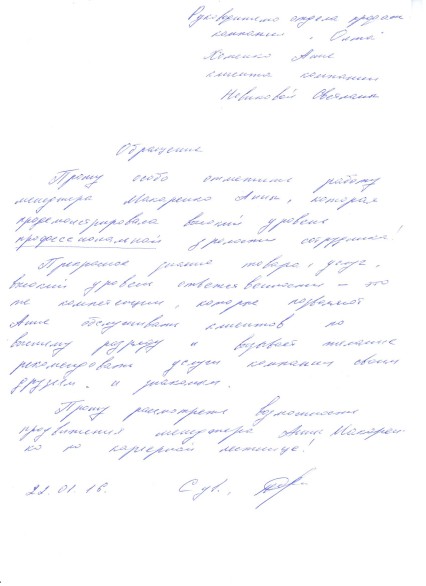 Руководителю отдела продаж
компании "Окта"
Хоменко Анне
клиента компании
Новиковой Светлана
Обращение
Прошу особо отметить работу
менеджера Макаренко Анны, которая
продемонстрировала высокий уровень
профессиональной зрелости сотрудника!
Прекрасное знание товара, услуг,
высокий уровень ответственности - это
те компетенции, которые позволяют
Анне обслуживать клиентов по
высшему разряду и вызывает желание
рекомендовать услуги компании своим
друзьям и знакомым.
Прошу рассмотреть возможность
продвижения менеджера Анны Макарен-
ко по карьерной лестнице!
22.01.18. С ув.,